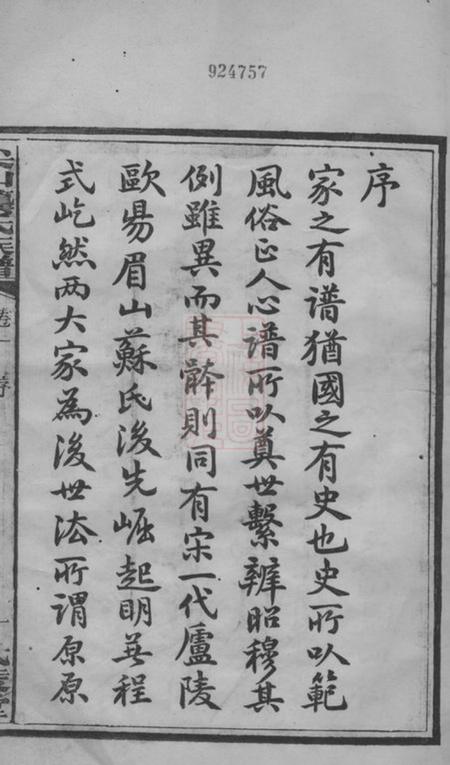 924757
序
家之有谱猶國之有史也史所以範
風俗正人心谱所以奠世繫辨昭穆其
例雖異而其體則同有宋一代廬陵
歐昜眉山蘇氏後先崛起明其程
式屹然两大家為後世法所謂原原
卷一
序